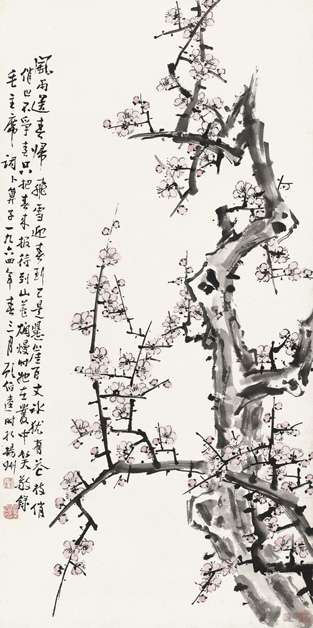 風雨送春歸 飛雪迎春到 已是懸崖百丈冰 猶有花枝俏
俏也不爭春 只把春來報 待到山花爛熳時 她在叢中笑 敬錄
毛主席詞卜算子 一九六四年春三月 伯逵時於揚州